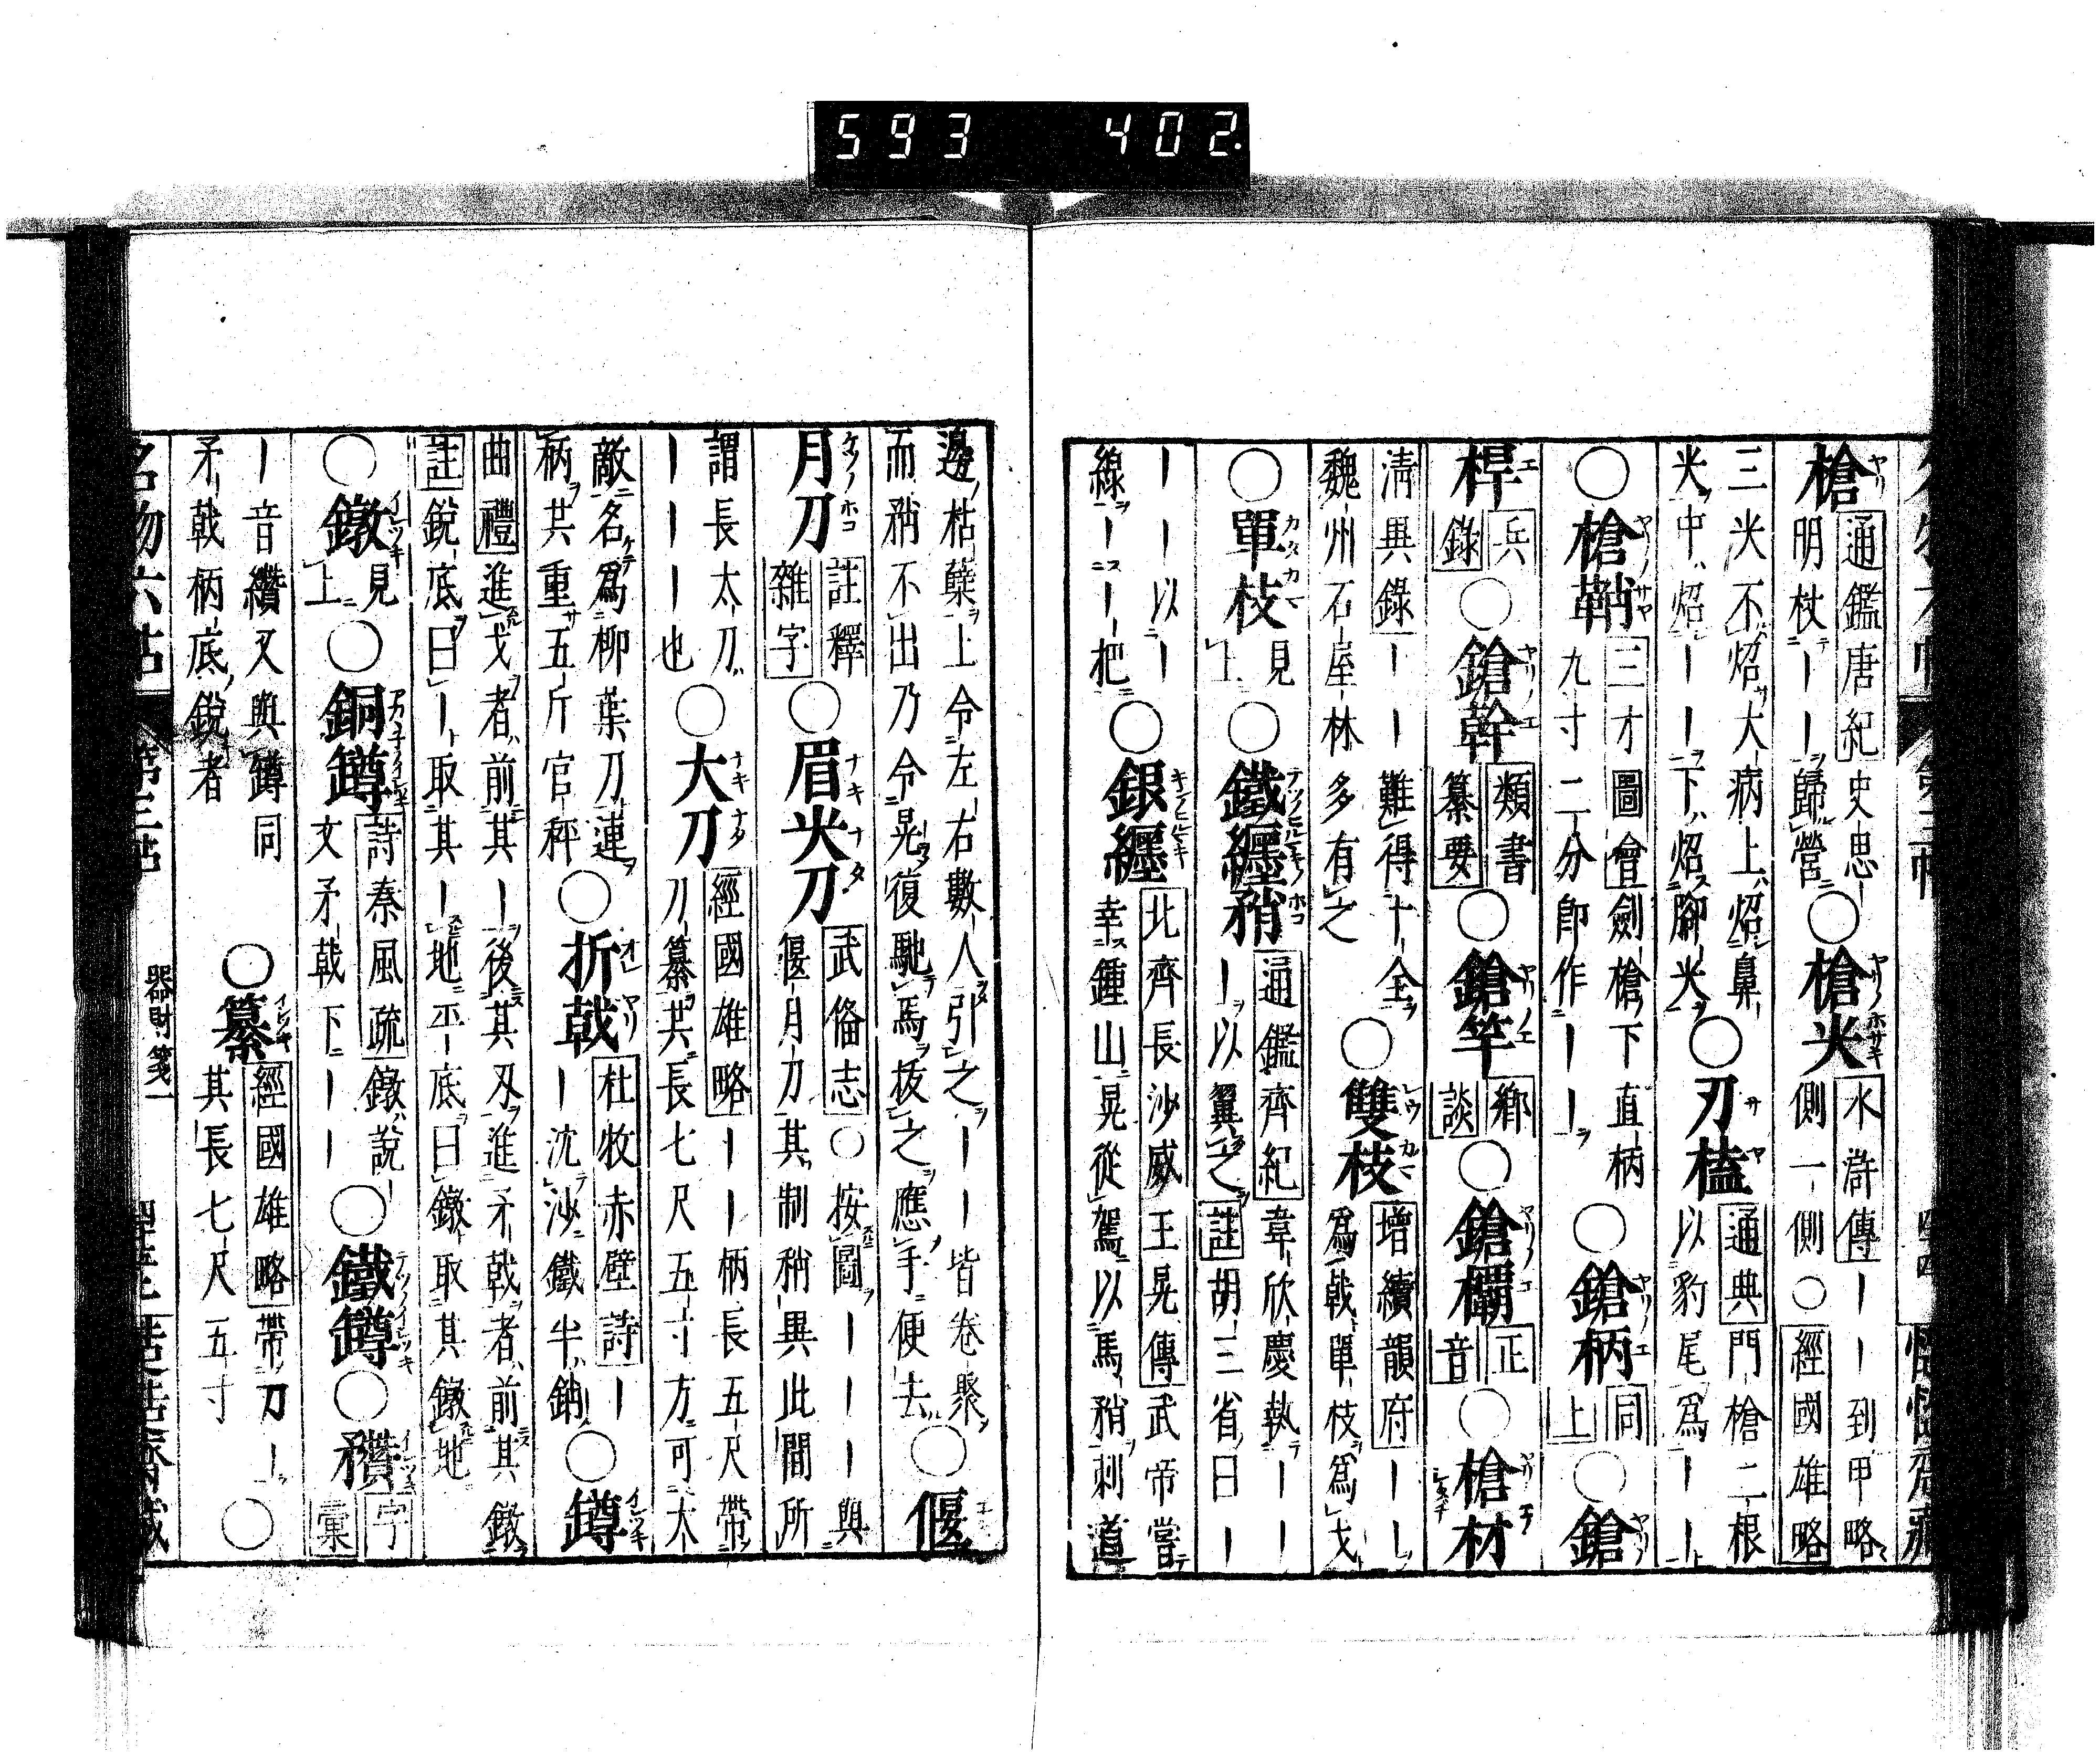 593 402.
槍 通鑑唐紀 史思
明杖ーー歸營 ○槍尖 水滸傳 ーー到甲略
側一側○經國雄略
三尖不炤大病上炤鼻
尖中炤ーー下炤腳尖 ○刃榼 通典 門槍二根
以豹尾爲ーー
○槍鞘 三才圖會 劍槍下直柄
九寸二分卽作ーー ○鎗柄 同上 ○鎗
桿 兵錄 ○鎗幹 類書纂要 ○鎗竿 鄉談 ○鎗欛 正音 ○槍材
清異錄 ーー難得十全
魏州石屋林多有之 ○雙枝 增續韻府 ーー
爲戟單枝爲戈
○單枝 見上 ○鐵纏矟 通鑑齊紀 韋欣慶執ーー
ー以翼之 註 胡三省曰ー
ーー以ー
線ーー把 ○銀纏 北齊長沙威王晃傳 武帝嘗
幸鍾山晃從駕以馬矟刺道
邊枯蘗上令左右數人引之ーー皆卷聚
而矟不出乃令晃復馳馬拔之應手便去 ○偃
月刀 註釋雜字 ○眉尖刀 武備志 ○按圖ーーー與
偃月刀其制稍異此間所
謂長太刀
ーーー也 ○大刀 經國雄略 ーー柄長五尺帶
刀纂共長七尺五寸方可大
敵名爲柳葉刀連
柄共重五斤官秤 ○折戟 杜牧赤壁詩 ー
ー沈沙鐵半銷 ○鐏
曲禮 進戈者前其ー後其刃進矛戟者前其鐓
註 銳底曰ー取其ー地平底曰鐓取其鐓地
○鐓 見上 ○銅鐏 詩秦風疏 鐓說ー
文矛戟下ーー ○鐵鐏 ○䂎 字彙
ー音纘又與鐏同
矛戟柄底銳者 ○纂 經國雄略 帶刀ー
其長七尺五寸 ○
器財箋一